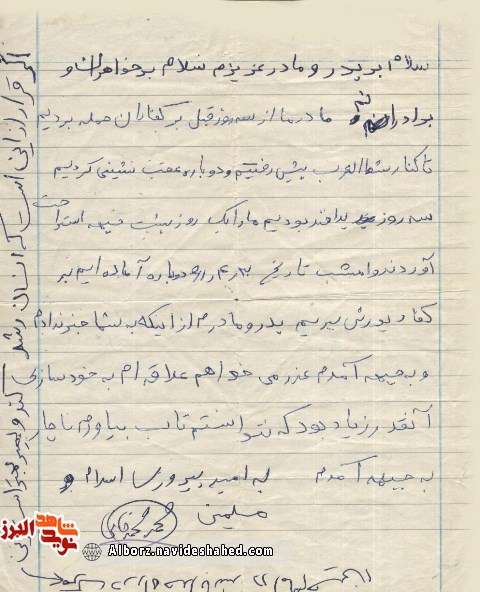 سلام بر پدر و مادر عزیزم سلام بر خواهران و
برادرانم مادر ما از سه روز قبل بر کفاران حمله بردیم
تا کنار شط العرب پیش رفتیم و دوباره عقب نشینی کردیم
سه روز پدافند بودیم ما را یک روز پشت استراحت
آوردند و امشب تاریخ دوباره آماده ایم بر
کفار یورش ببریم پدر و مادرم از اینکه به شما خبر ندادم
و به جبهه آمدم عذر می خواهم علاقه ام به خودسازی
آنقدر زیاد بود که نتوانستم تاب بیاورم ناچار
به جبهه آمدم به امید پیروزی اسلام و
مسلمین
اگر قرار از این است که انسان رشد کند
شاهد
نوید
البرز
Alborz.navideshahed.com